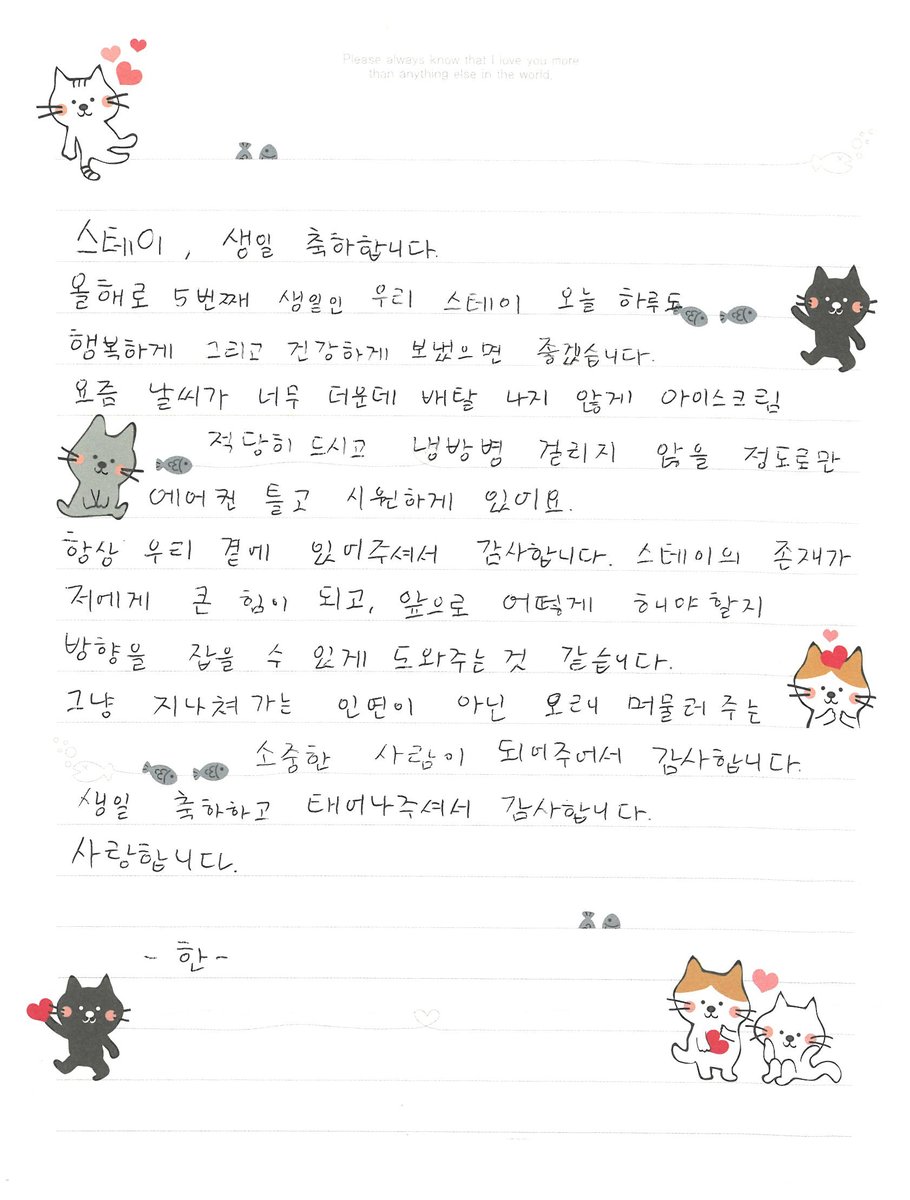 Please always know that I love you more
than anything else in the world.
스테이, 생일 축하합니다.
올해로 5번째 생일인 우리 스테이 오늘 하루도
행복하게 그리고 건강하게 보냈으면 좋겠습니다.
요즘 날씨가 너무 더운데 배탈 나지 않게 아이스크림
적당히 드시고 냉방병 걸리지 않을 정도로만
에어컨 틀고 시원하게 있어요.
항상 우리 곁에 있어주셔서 감사합니다. 스테이의 존재가
저에게 큰 힘이 되고, 앞으로 어떻게 해야할지
방향을 잡을 수 있게 도와주는것 같습니다.
그냥 지나쳐가는 인연이 아닌 오래 머물러주는
소중한 사람이 되어주어서 감사합니다.
생일 축하하고 태어나주셔서 감사합니다.
사랑합니다.
- 한 -